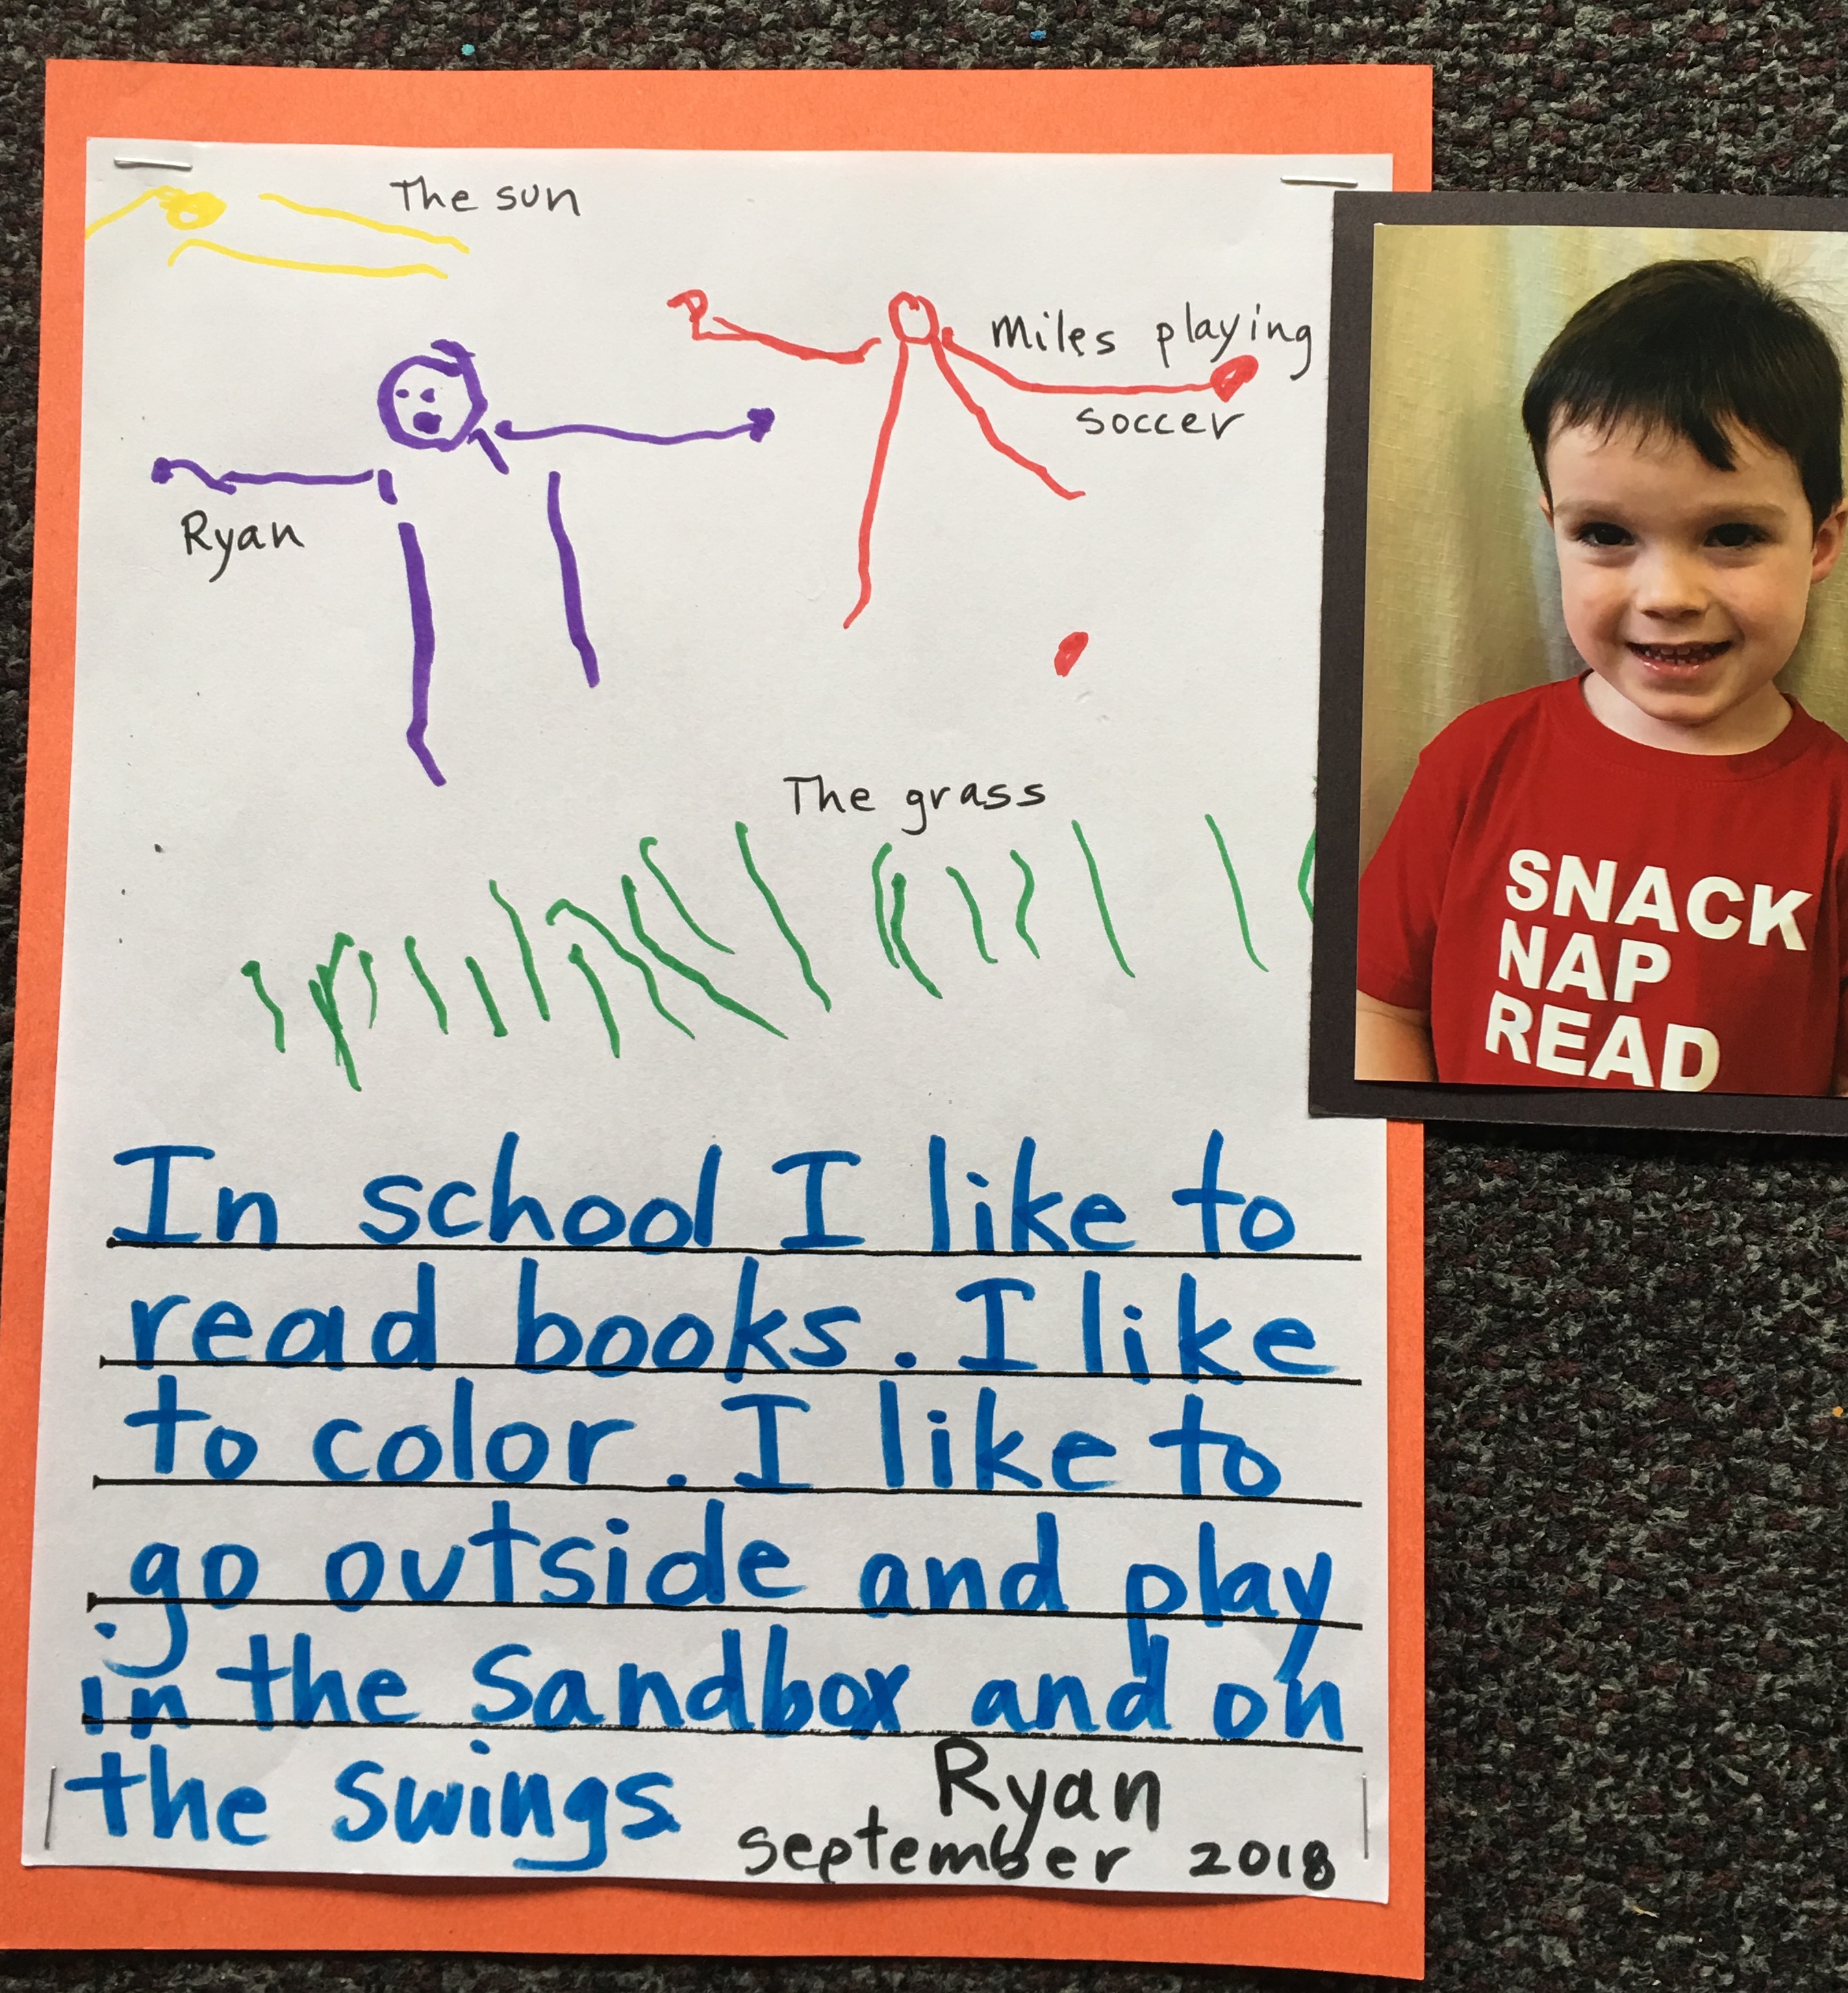 The sun
Miles playing
soccer
Ryan
The grass
In school I like to
read books. I like
to color. I like to
go outside and play
in the sandbox and on
the swings
Ryan
September 2018
SNACK
NAP
READ